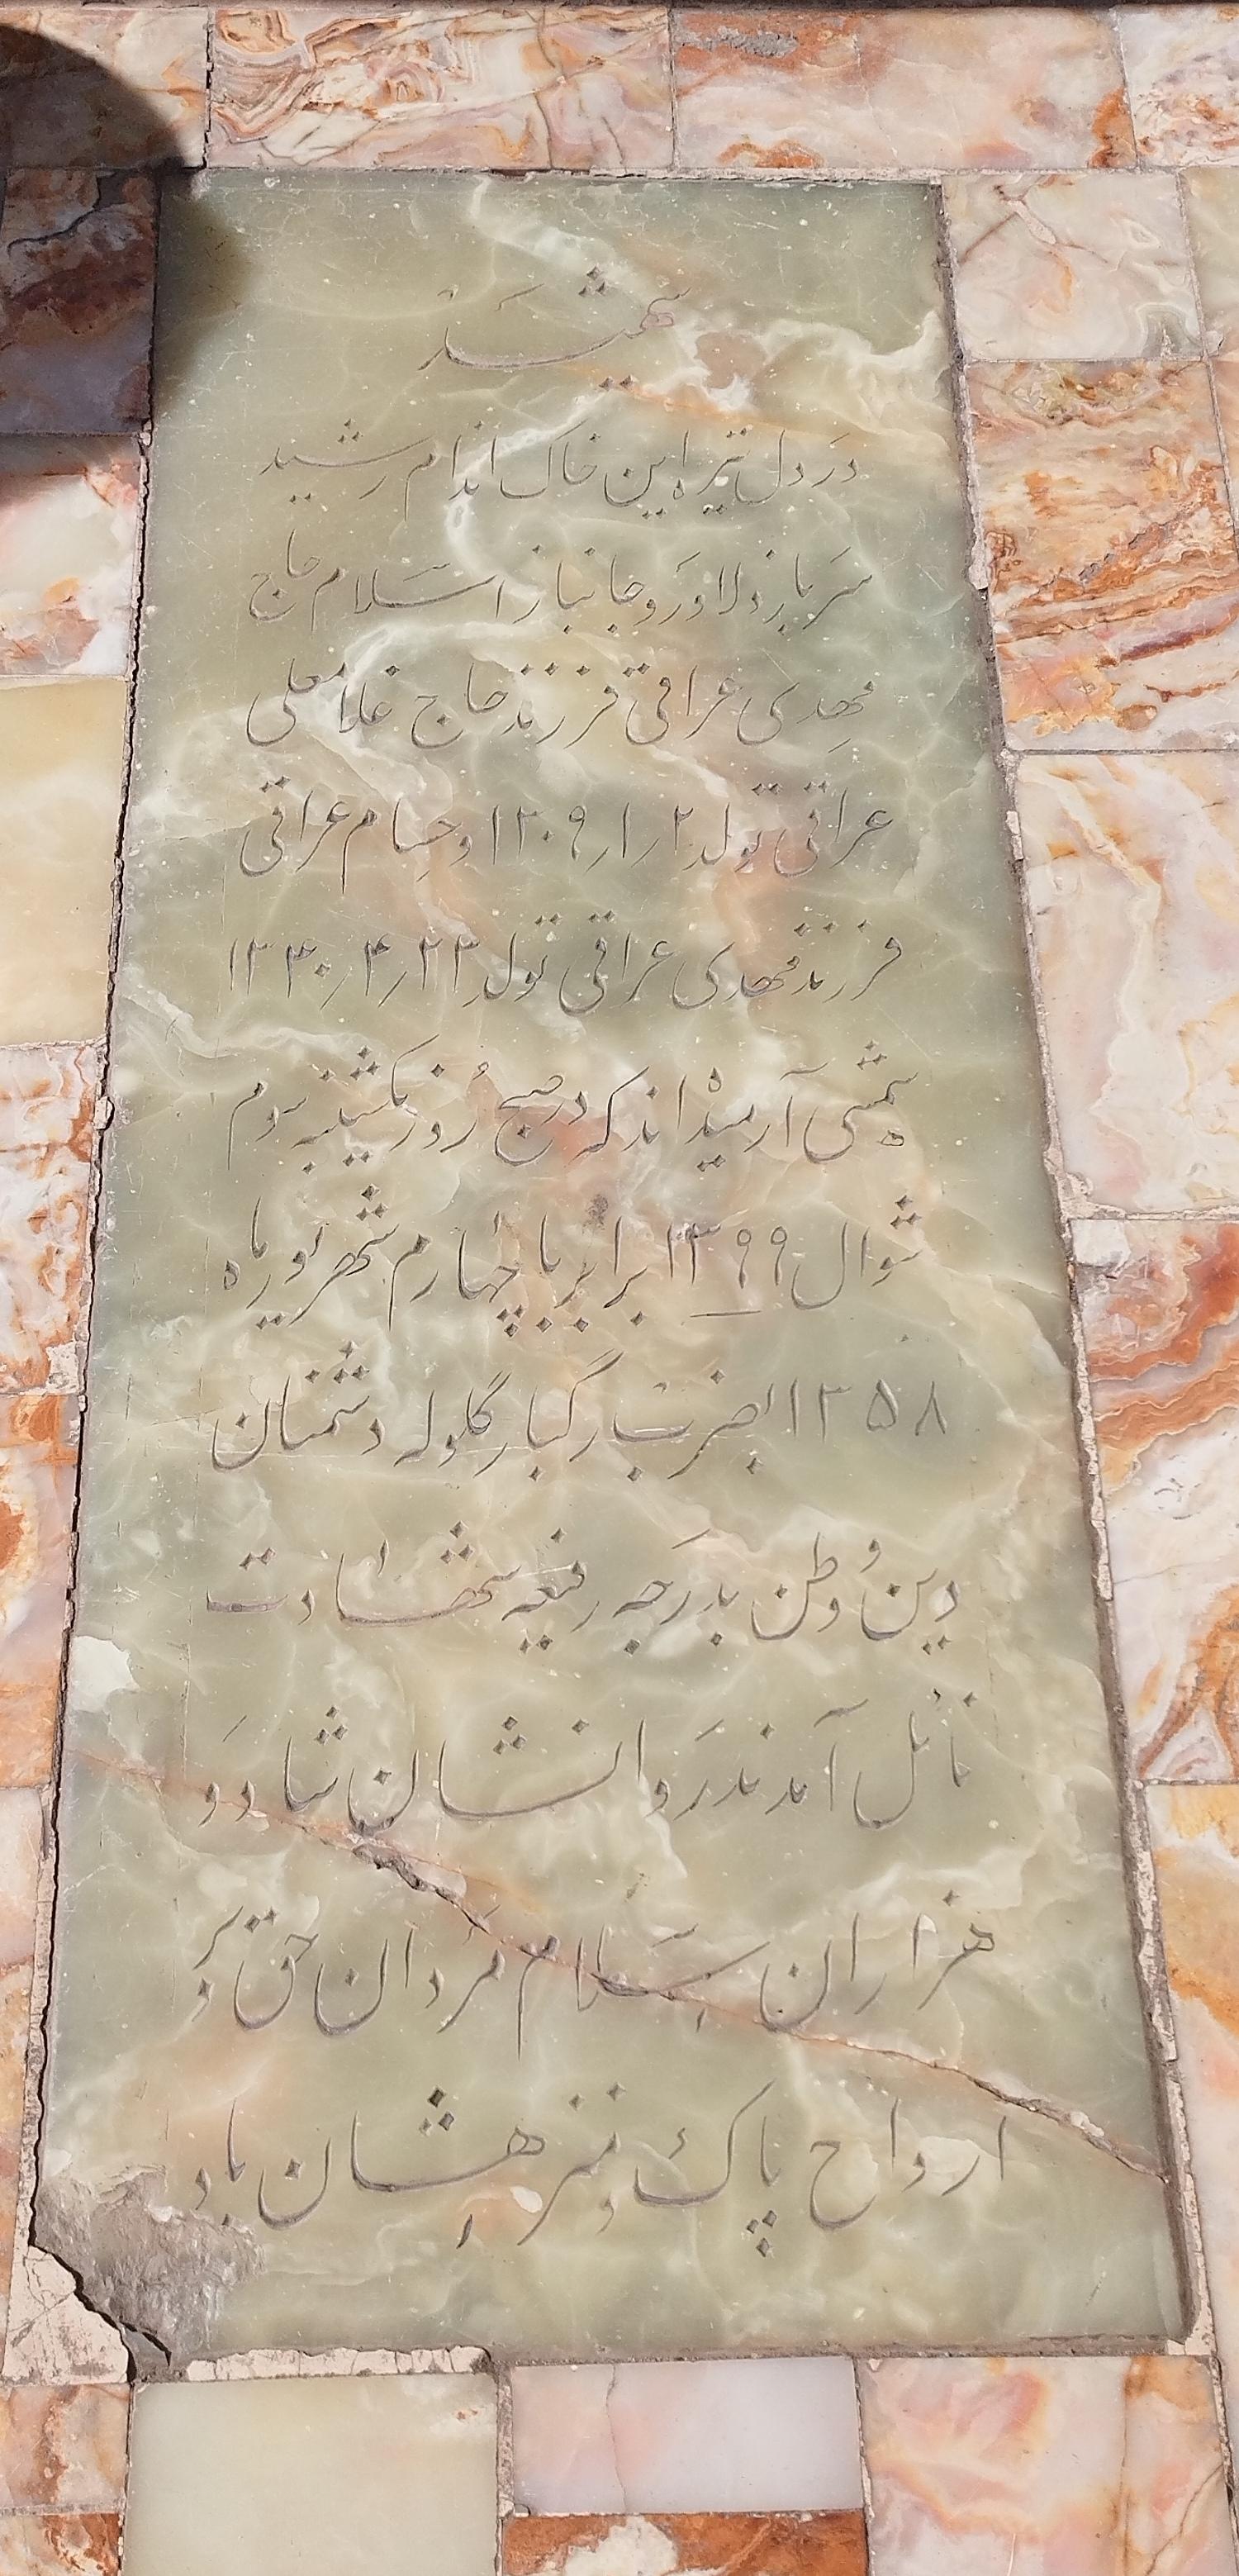 شهید
در دل تیره این خاک اندام رشید
سرباز دلاور و جانباز اسلام حاج
مهدی عراقی فرزند حاج غلامعلی
عراقی تولد ۱۳۰۹/۱/۲ و حسام عراقی
فرزند مهدی عراقی تولد ۱۳۳۰/۴/۲۳
شمسی آرمیده‌اند که در صبح روز یکشنبه سوم
شوال ۱۳۹۹ برابر با چهارم شهریور ماه
۱۳۵۸ بضرب رگبار گلوله دشمنان
دین و وطن بدرجه رفیعه شهادت
نائل آمدند روانشان شاد و
هزاران سلام مردان حق بر
ارواح پاک و منزهشان باد